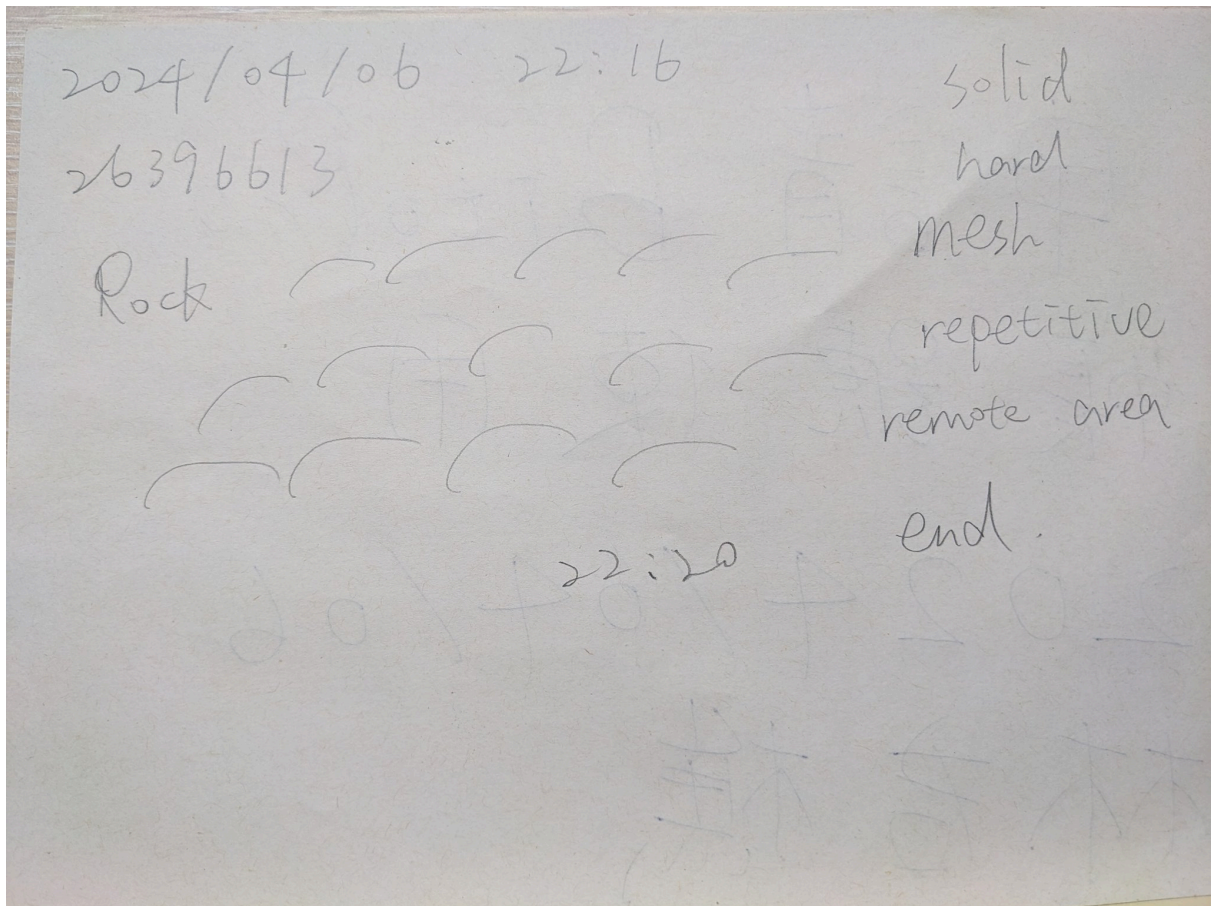 2024/04/06 22:16
26396613
Rock
solid
hard
mesh
repetitive
remote area
end.
22:20